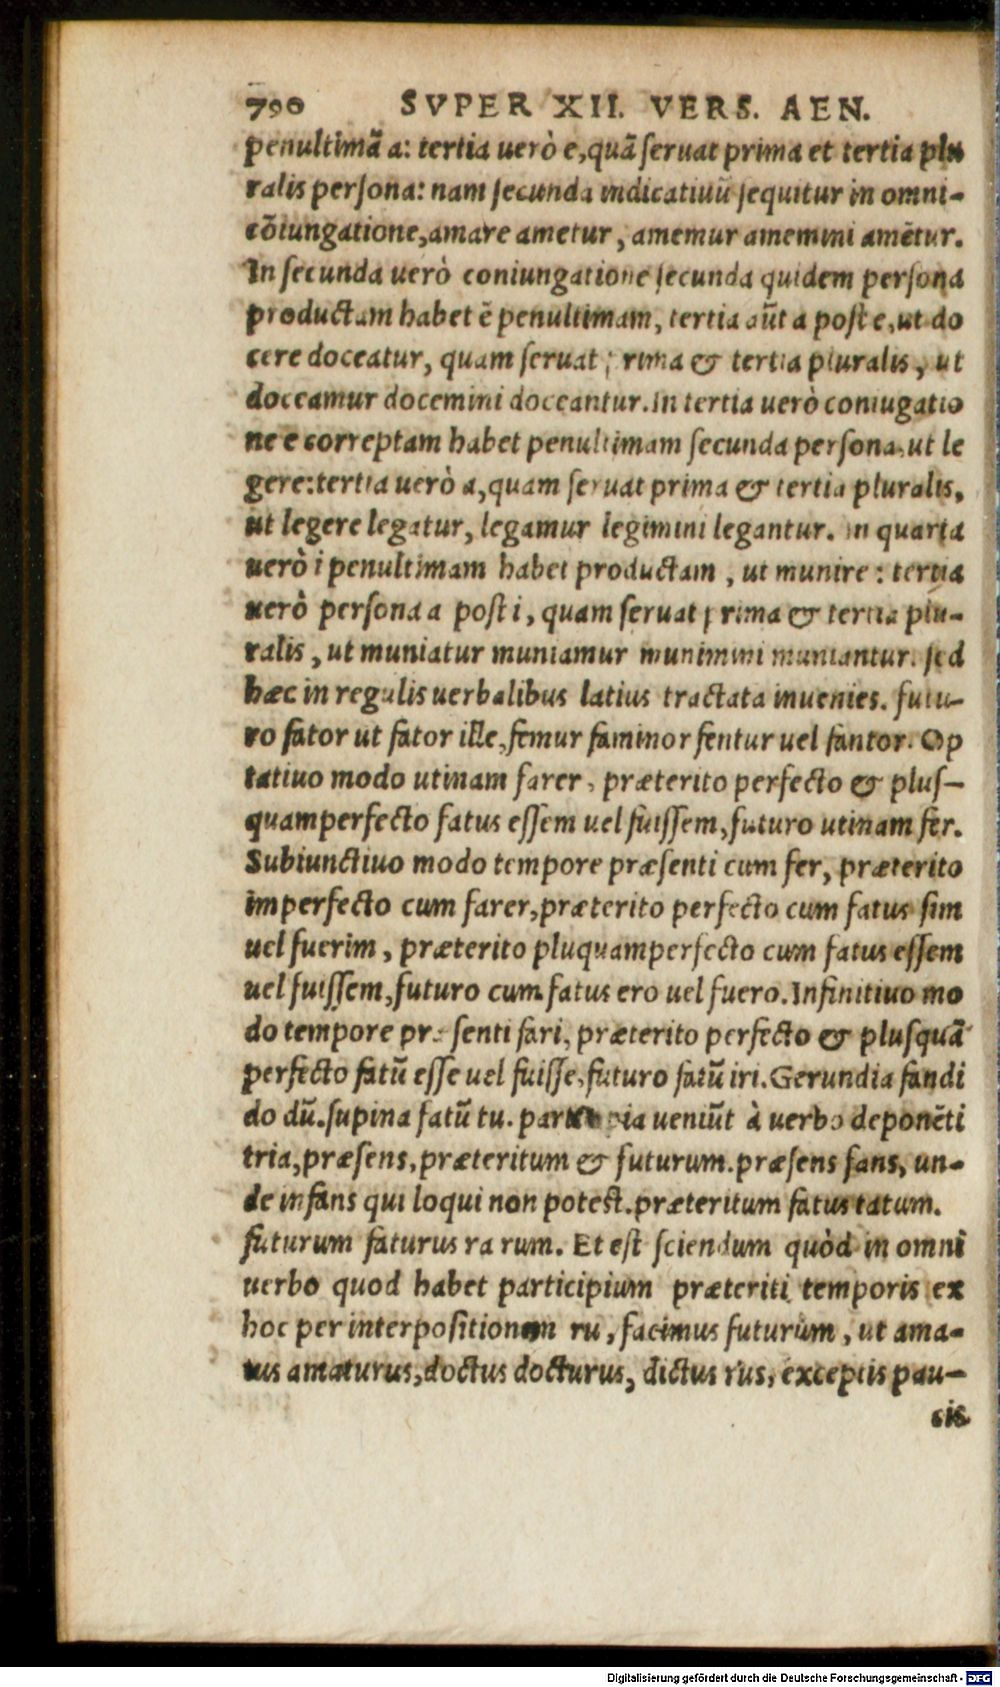 790 SVPER XII. VERS. AEN.
penultimā a: tertia uerò e, quā seruat prima et tertia plu
ralis persona: nam secunda indicatiuū sequitur in omni-
cōiungatione, amare ametur, amemur amemini amētur.
In secunda uerò coniungatione secunda quidem persona
productam habet ē penultimam, tertia aūt a post e, ut do
cere doceatur, quam seruat prima & tertia pluralis, ut
doceamur docemini doceantur. In tertia uerò coniugatio
ne e correptam habet penultimam secunda persona, ut le
gere: tertia uerò a, quam seruat prima & tertia pluralis,
ut legere legatur, legamur legimini legantur. In quarta
uerò i penultimam habet productam, ut munire: tertia
uerò persona a post i, quam seruat prima & tertia plu-
ralis, ut muniatur muniamur munimini muniantur. sed
hæc in regulis uerbalibus latius tractata inuenies. futu-
ro fator ut fator ille, femur faminor fentur uel fantor. Op
tatiuo modo utinam farer, præterito perfecto & plus-
quamperfecto fatus essem uel fuissem, futuro utinam fer.
Subiunctiuo modo tempore præsenti cum fer, præterito
imperfecto cum farer, præterito perfecto cum fatus sim
uel fuerim, præterito pluquamperfecto cum fatus essem
uel fuissem, futuro cum fatus ero uel fuero. Infinitiuo mo
do tempore præsenti fari, præterito perfecto & plusquā
perfecto fatū esse uel fuisse, futuro fatū iri. Gerundia fandi
do dū. supina fatū tu. participia ueniūt à uerbo deponēti
tria, præsens, præteritum & futurum. præsens fans, un-
de infans qui loqui non potest. præteritum fatus tatum.
futurum faturus ra rum. Et est sciendum quòd in omni
uerbo quod habet participium præteriti temporis ex
hoc per interpositionem ru, facimus futurum, ut ama-
tus amaturus, doctus docturus, dictus rus, exceptis pau-
cis
Digitalisierung gefördert durch die Deutsche Forschungsgemeinschaft - DFG